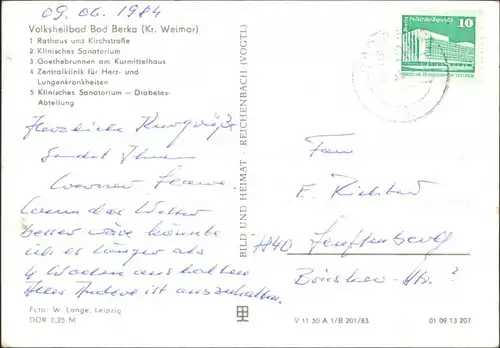 09.06.1984
Volksheilbad Bad Berka (Kr. Weimar)
1 Rathaus und Kirchstraße
2 Klinisches Sanatorium
3 Goethebrunnen am Kurmittelhaus
4 Zentralklinik für Herz- und
Lungenkrankheiten
5 Klinisches Sanatorium – Diabetes-
Abteilung
Herzliche Kurgrüße
sendet Ihnen
Werner
Wenn das Wetter
besser wäre könnte
ich es länger als
4 Wochen aushalten
Alles Andere ist auszuhalten.
Foto: W. Lange, Leipzig
DDR 0,25 M
BILD UND HEIMAT · REICHENBACH (VOGTL)
10
E. Richter
7840 Senftenberg
Str. ?
V 11 50 A 1/B 201/83
01 09 13 207